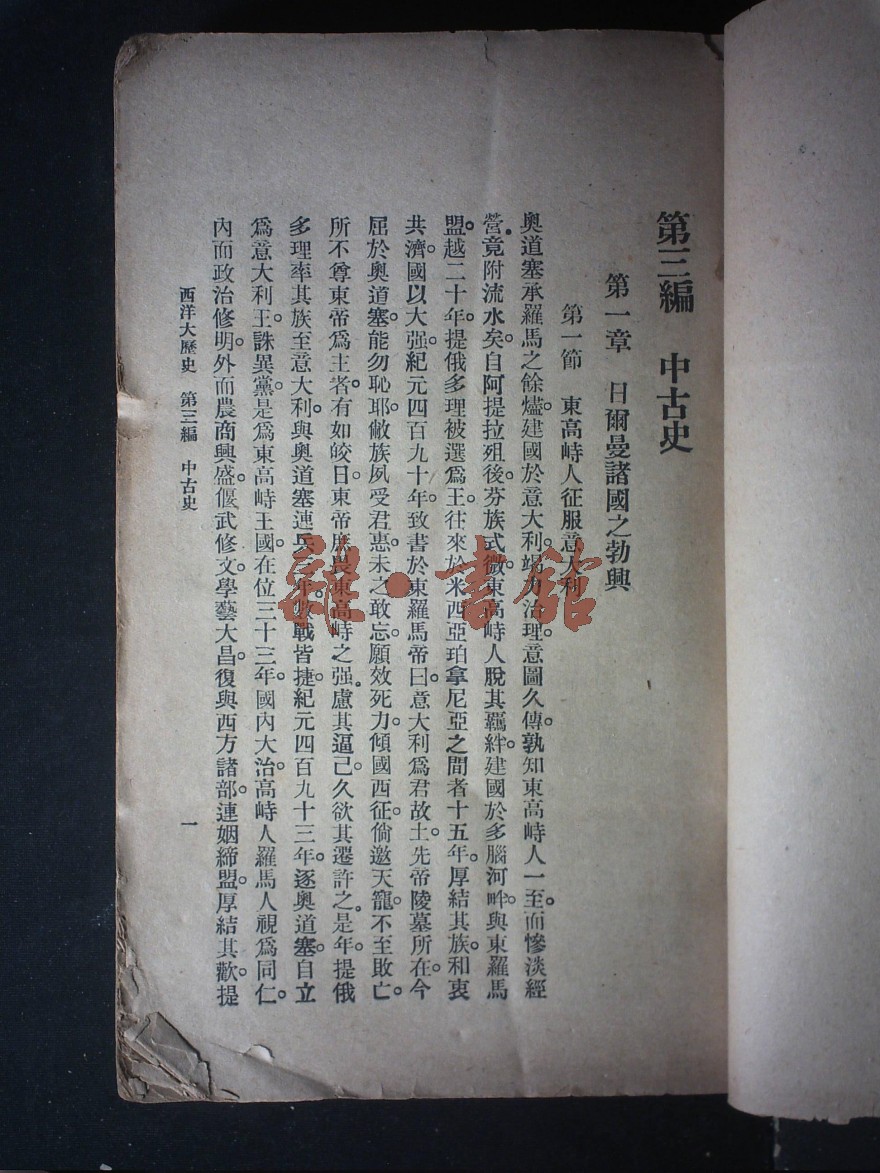 第三編　中古史
第一章　日爾曼諸國之勃興
第一節　東高峙人征服意大利
奧道塞承羅馬之餘燼建國於意大利竭力治理意圖久傳孰知東高峙人一至而慘淡經
營竟附流水矣自阿提拉殂後芬族式微東高峙人脫其羈絆建國於多腦河畔與東羅馬
盟越二十年提俄多理被選爲王往來於米西亞珀拿尼亞之間者十五年厚結其族和衷
共濟國以大强紀元四百九十年致書於東羅馬帝曰意大利爲君故土先帝陵墓所在今
屈於奧道塞能勿恥耶敝族夙受君惠未之敢忘願效死力傾國西征倘邀天寵不至敗亡
所不尊東帝爲主者有如皎日東帝 畏東高峙之强慮其逼己久欲其遷許之是年提俄
多理率其族至意大利與奧道塞連兵三年數戰皆捷紀元四百九十三年逐奧道塞自立
爲意大利王誅異黨是爲東高峙王國在位三十三年國內大治高峙人羅馬人視爲同仁
內而政治修明外而農商興盛偃武修文學藝大昌復與西方諸部連姻締盟厚結其歡提
西洋大歷史　第三編　中古史
一
雜·書館